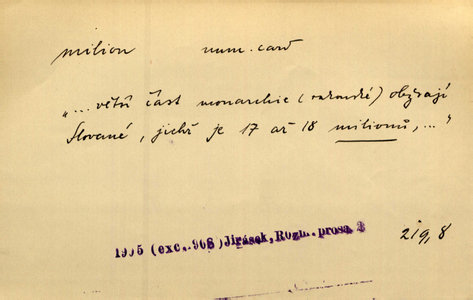 milion num. card
„... větší část monarchie (rakouské) obývají
Slované, jichž je 17 až 18 milionů, ..."
1905 (exc. 908) Jirásek, Rozm. prosa 2
219, 8